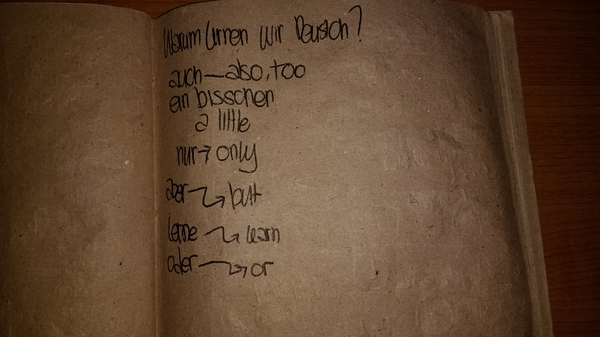 Warum lernen wir Deutsch?
auch — also, too
ein bisschen
a little
nur → only
aber → but
lerne → learn
oder → or